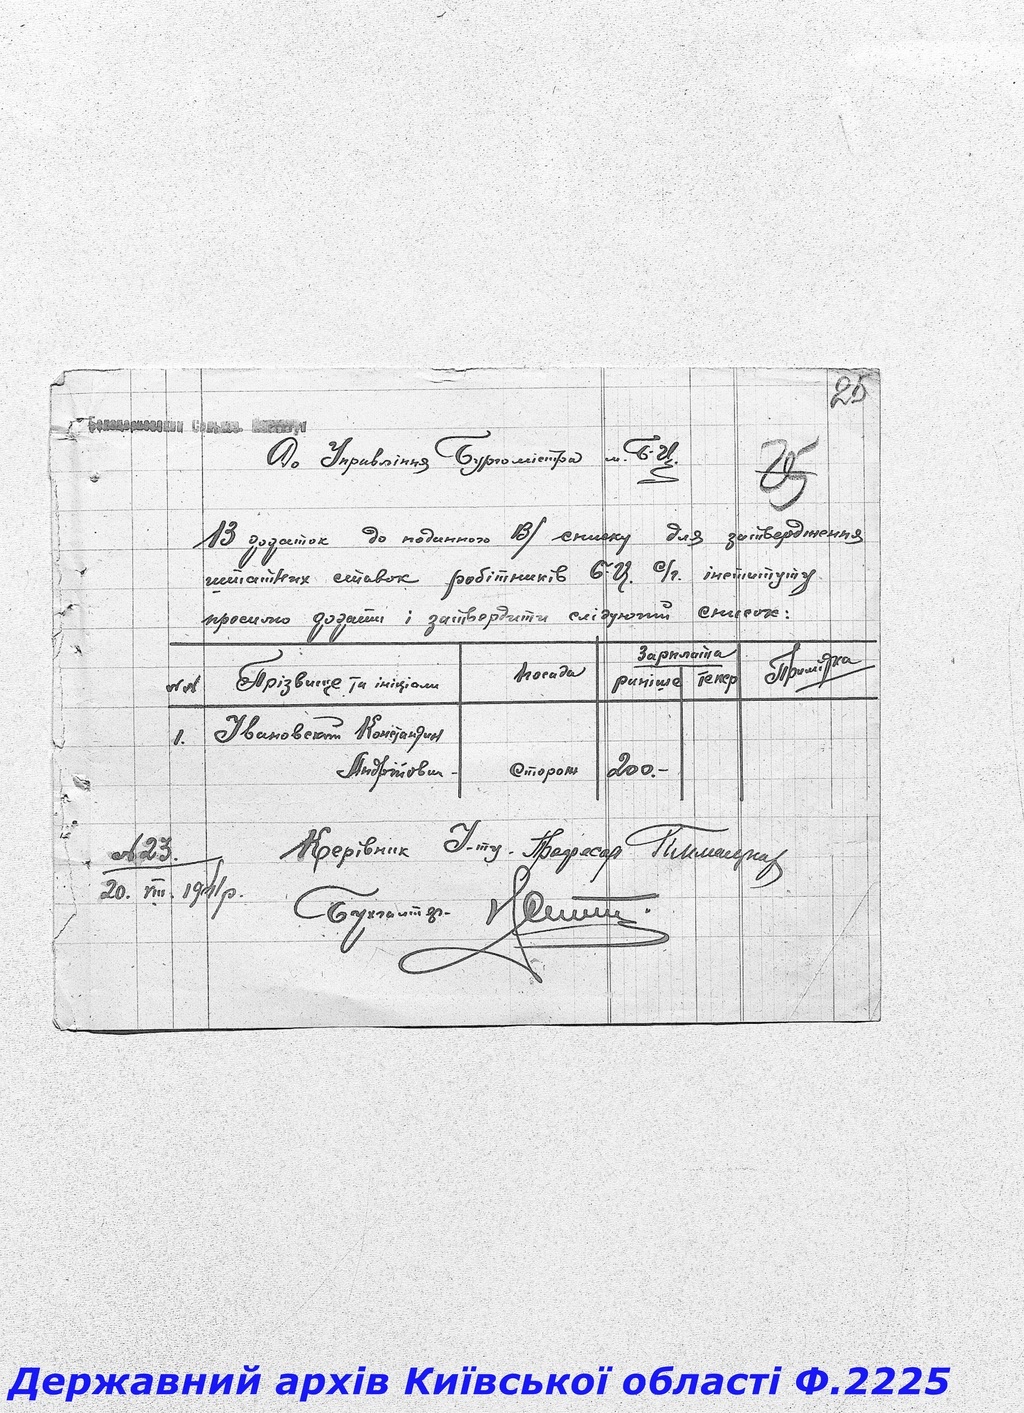 25
Белоцерковский Сельхоз. Институт
До Управління Бургомістра м. Б-Ц.
25
В додаток до поданного В/ списку для затвердження
штатних ставок робітників Б-Ц. С/г. інституту
просимо додати і затвердити слідуючий список:
NN Прізвище та ініціали Посада Зарплата Примітка
раніше тепер
1. Івановский Констандин
Андрійович - Сторож 200.-
N 23. Керівник І-ту. Професор
20. VIII. 1941 р.
Бухгалтер.
Державний архів Київської області Ф.2225